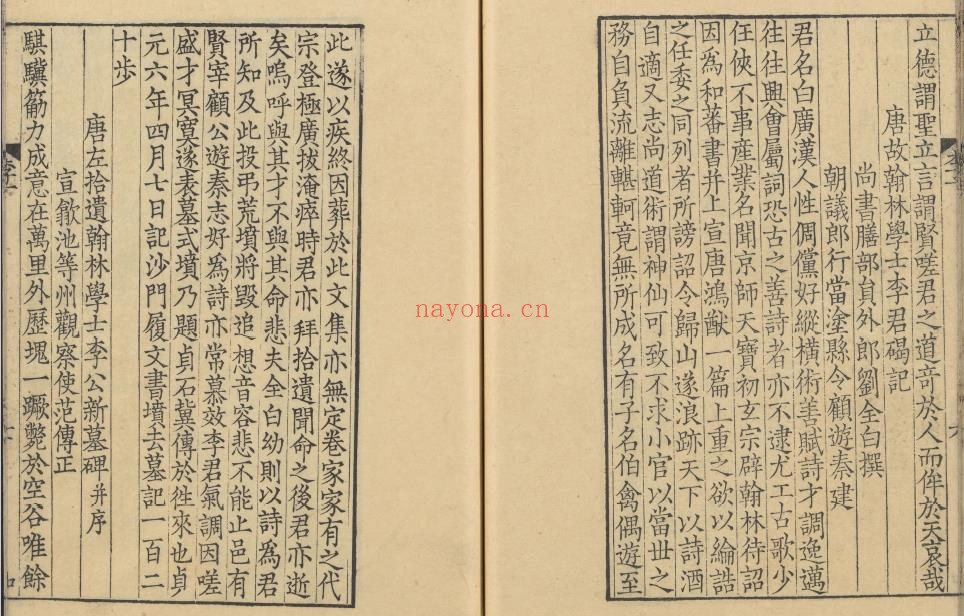 立德謂聖立言謂賢嗟君之道竒於人而侔於天哀哉
唐故翰林學士李君碣記
尚書膳部貟外郎劉全白撰
朝議郎行當塗縣令顧遊秦建
君名白廣漢人性倜儻好縱橫術善賦詩才調逸邁
往往興會屬詞恐古之善詩者亦不逮尤工古歌少
任俠不事産業名聞京師天寶初玄宗辟翰林待詔
因為和蕃書并上宣唐鴻猷一篇上重之欲以綸誥
之任委之同列者所謗詔令歸山遂浪跡天下以詩酒
自適又志尚道術謂神仙可致不求小官以當世之
務自負流離轗軻竟無所成名有子名伯禽偶遊至
此遂以疾終因葬於此文集亦無定卷家家有之代
宗登極廣拔淹瘁時君亦拜拾遺聞命之後君亦逝
矣嗚呼與其才不與其命悲夫全白幼則以詩為君
所知及此投弔荒墳將毀追想音容悲不能止邑有
賢宰顧公遊秦志好爲詩亦常慕效李君氣調因嗟
盛才冥寞遂表墓式墳乃題貞石冀傳於徃來也貞
元六年四月七日記沙門履文書墳去墓記一百二
十歩
唐左拾遺翰林學士李公新墓碑并序
宣歙池等州觀察使范傳正
騏驥筋力成意在萬里外歷塊一蹶斃於空谷唯餘
nayona.cn